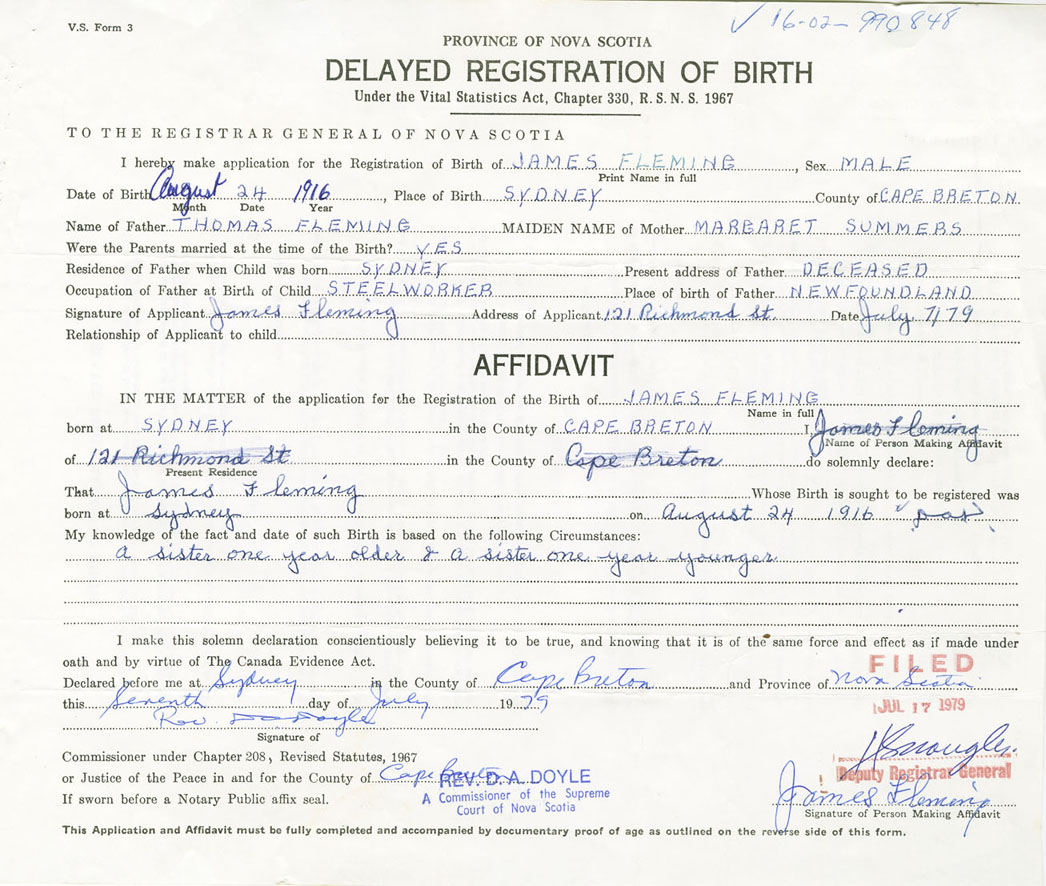 V.S. Form 3
✓ 16-02-990848
PROVINCE OF NOVA SCOTIA
DELAYED REGISTRATION OF BIRTH
Under the Vital Statistics Act, Chapter 330, R.S.N.S. 1967
TO THE REGISTRAR GENERAL OF NOVA SCOTIA
I hereby make application for the Registration of Birth of JAMES FLEMING, Sex MALE
Print Name in full
Date of Birth August 24 1916, Place of Birth SYDNEY County of CAPE BRETON
Month Date Year
Name of Father THOMAS FLEMING MAIDEN NAME of Mother MARGARET SUMMERS
Were the Parents married at the time of the Birth? YES
Residence of Father when Child was born SYDNEY Present address of Father DECEASED
Occupation of Father at Birth of Child STEELWORKER Place of birth of Father NEWFOUNDLAND
Signature of Applicant James Fleming Address of Applicant 121 Richmond St. Date July 7/79
Relationship of Applicant to child
AFFIDAVIT
IN THE MATTER of the application for the Registration of the Birth of JAMES FLEMING
Name in full
born at SYDNEY in the County of CAPE BRETON I, James Fleming
Name of Person Making Affidavit
of 121 Richmond St in the County of Cape Breton do solemnly declare:
Present Residence
That James Fleming Whose Birth is sought to be registered was
born at Sydney on August 24 1916
My knowledge of the fact and date of such Birth is based on the following Circumstances:
A sister one year older & a sister one year younger
I make this solemn declaration conscientiously believing it to be true, and knowing that it is of the same force and effect as if made under
oath and by virtue of The Canada Evidence Act.
FILED
Declared before me at Sydney in the County of Cape Breton and Province of Nova Scotia
this Seventh day of July 1979
JUL 17 1979
Rev. D A Doyle
Signature of
Commissioner under Chapter 208, Revised Statutes, 1967
or Justice of the Peace in and for the County of Cape Breton
REV. D. A. DOYLE
Deputy Registrar General
A Commissioner of the Supreme
Court of Nova Scotia
If sworn before a Notary Public affix seal.
James Fleming
Signature of Person Making Affidavit
This Application and Affidavit must be fully completed and accompanied by documentary proof of age as outlined on the reverse side of this form.